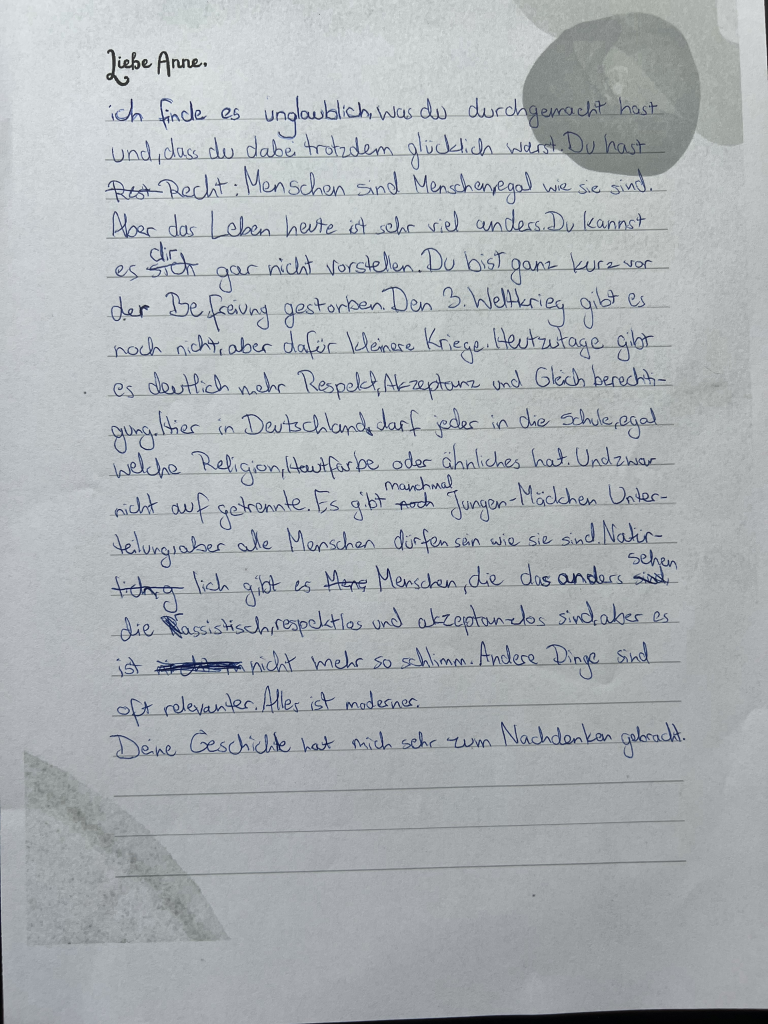 Liebe Anne.
ich finde es unglaublich, was du durchgemacht hast
und, dass du dabe trotzdem glücklich warst. Du hast
Recht: Menschen sind Menschen, egal wie sie sind.
Aber das Leben heute ist sehr viel anders. Du kannst
es dir gar nicht vorstellen. Du bist ganz kurz vor
der Befreiung gestorben. Den 3. Weltkrieg gibt es
noch nicht, aber dafür kleinere Kriege. Heutzutage gibt
es deutlich mehr Respekt, Akzeptanz und Gleichberechti-
gung. Hier in Deutschland, darf jeder in die Schule, egal
welche Religion, Hautfarbe oder ähnliches hat. Undzwar
nicht auf getrennte. Es gibt manchmal Jungen-Mädchen Unter-
teilung, aber alle Menschen dürfen sein wie sie sind. Natür-
lich gibt es Menschen, die das anders sehen
die Rassistisch, respektlos und akzeptanzlos sind, aber es
ist nicht mehr so schlimm. Andere Dinge sind
oft relevanter. Alles ist moderner.
Deine Geschichte hat mich sehr zum Nachdenken gebracht.